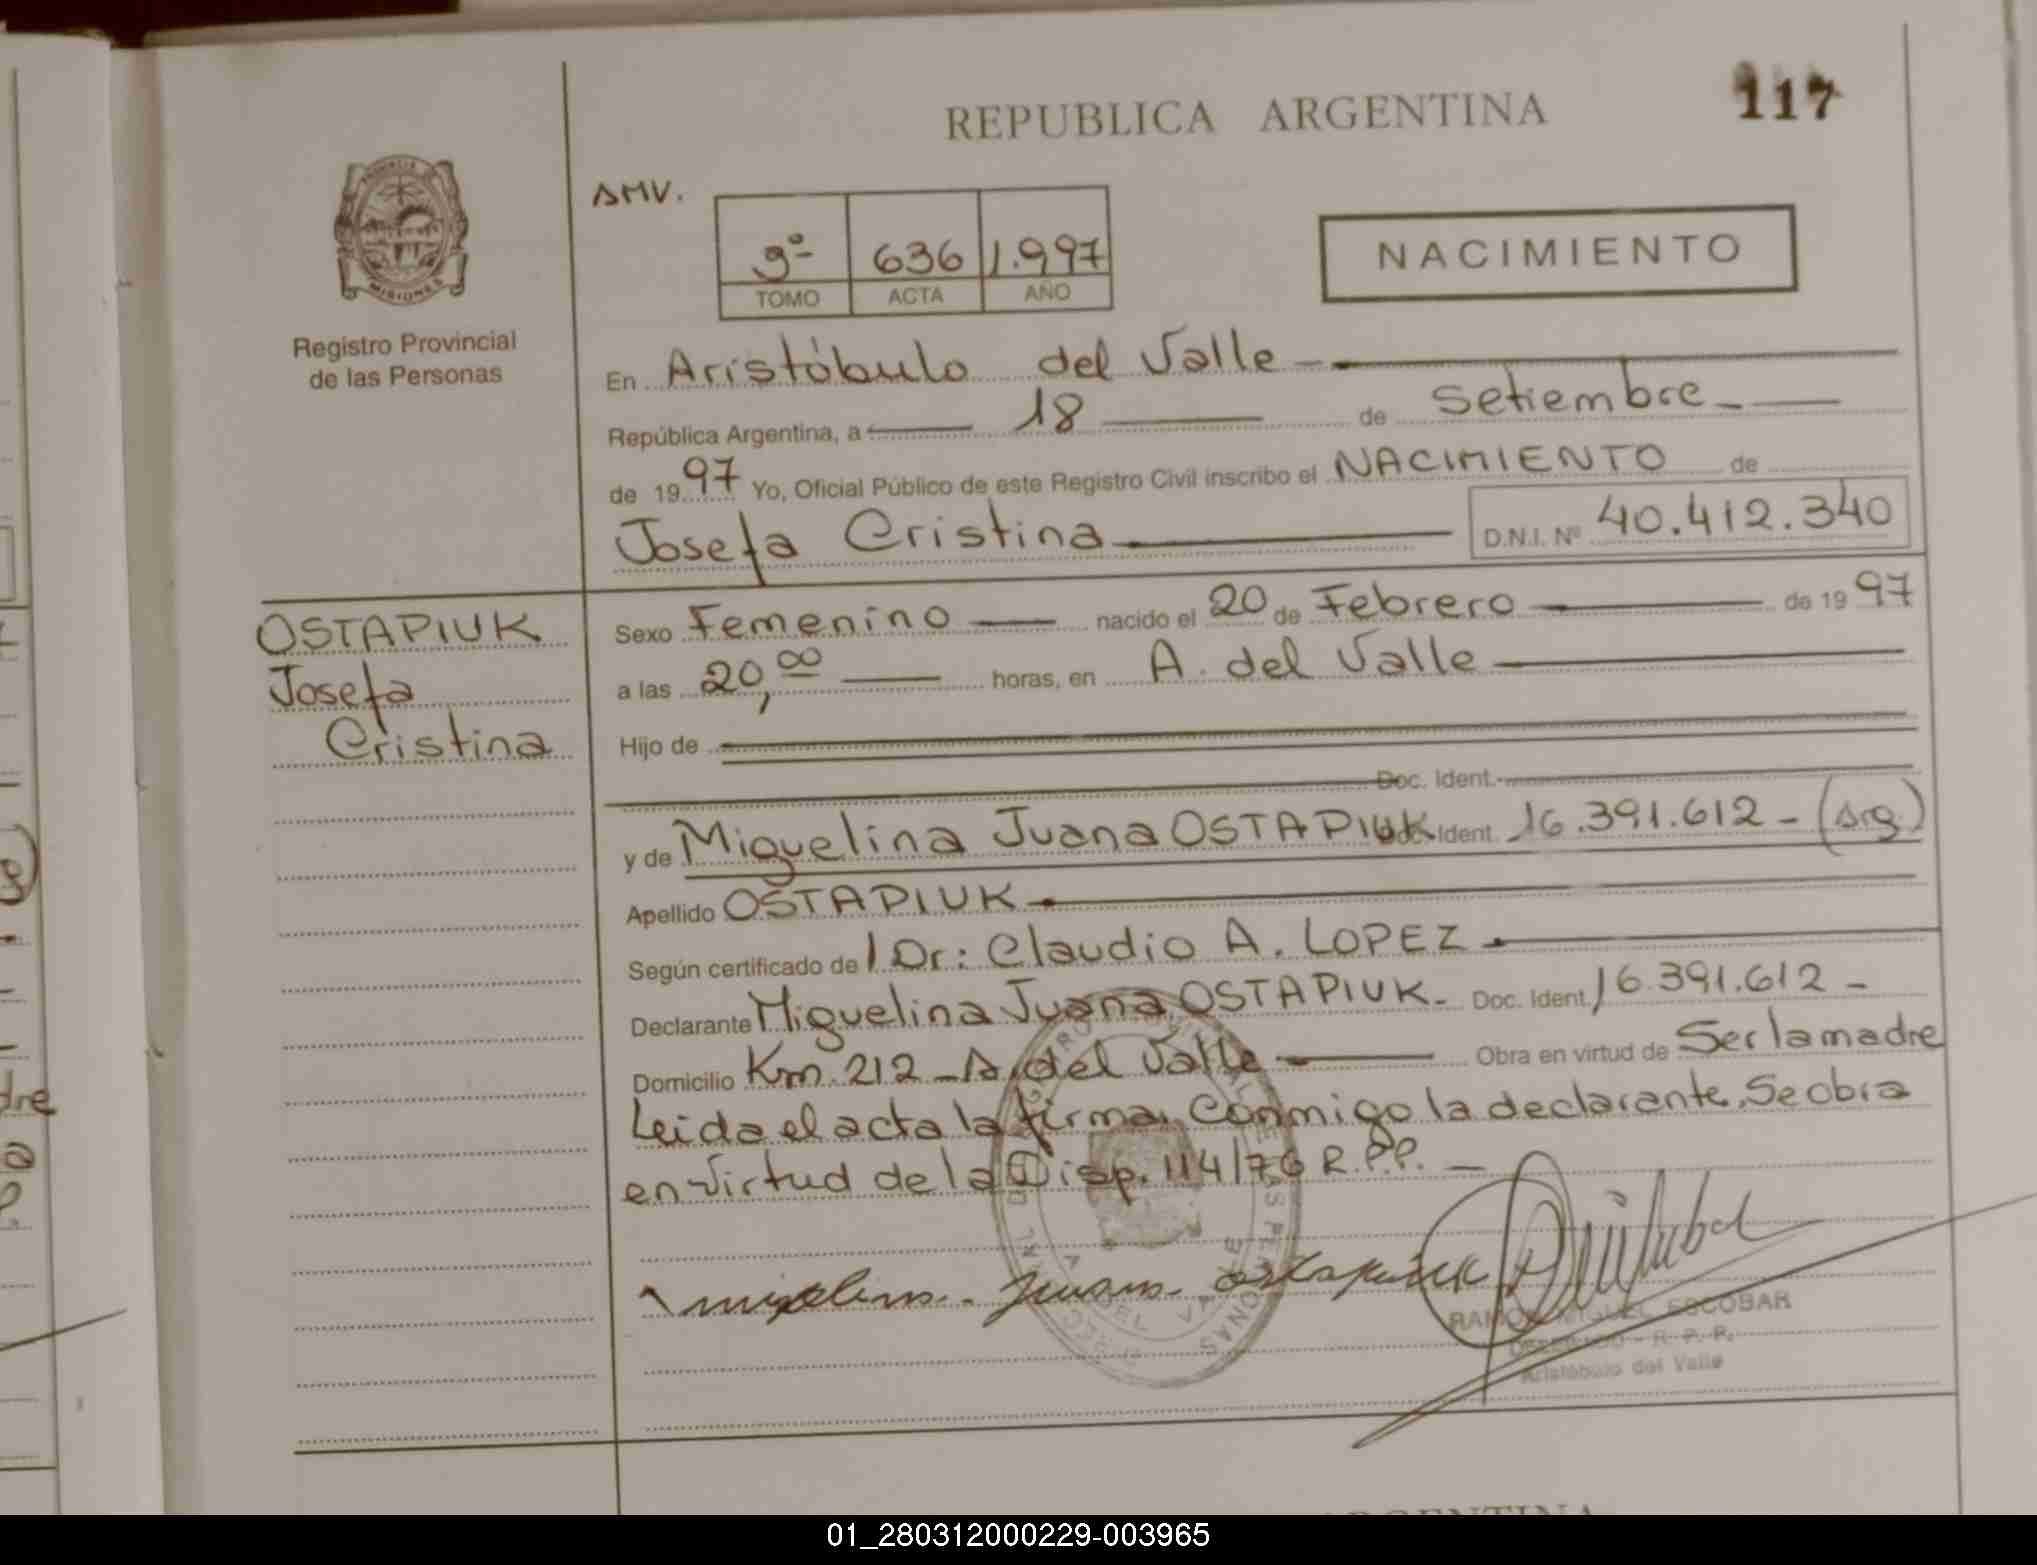 REPUBLICA ARGENTINA
117
PROVINCIA DE
MISIONES
Registro Provincial
de las Personas
AMV.
3º 636 1.997
TOMO ACTA AÑO
NACIMIENTO
En Aristóbulo del Valle
República Argentina, a 18 de Setiembre
de 1997 Yo, Oficial Público de este Registro Civil inscribo el NACIMIENTO de
Josefa Cristina D.N.I. Nº 40.412.340
OSTAPIUK
Josefa
Cristina
Sexo Femenino nacido el 20 de Febrero de 1997
a las 20,00 horas, en A. del Valle
Hijo de
Doc. Ident.
y de Miguelina Juana OSTAPIUK Doc. Ident. 16.391.612 - (Arg)
Apellido OSTAPIUK
Según certificado de Dr: Claudio A. LOPEZ
Declarante Miguelina Juana OSTAPIUK. Doc. Ident. 16.391.612 -
Domicilio Km. 212 - A. del Valle Obra en virtud de Ser la madre
Leida el acta la firma conmigo la declarante. Se obra
en virtud de la Disp. 114/76 R.P.P.
Miguelina Juana Ostapiuk
RAMON MIGUEL ESCOBAR
DELEGADO - R. P. P.
Aristóbulo del Valle
dre
a
P.
ARGENTINA
01_280312000229-003965